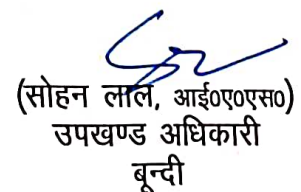 (सोहन लाल, आई०ए०एस०)
उपखण्ड अधिकारी
बून्दी